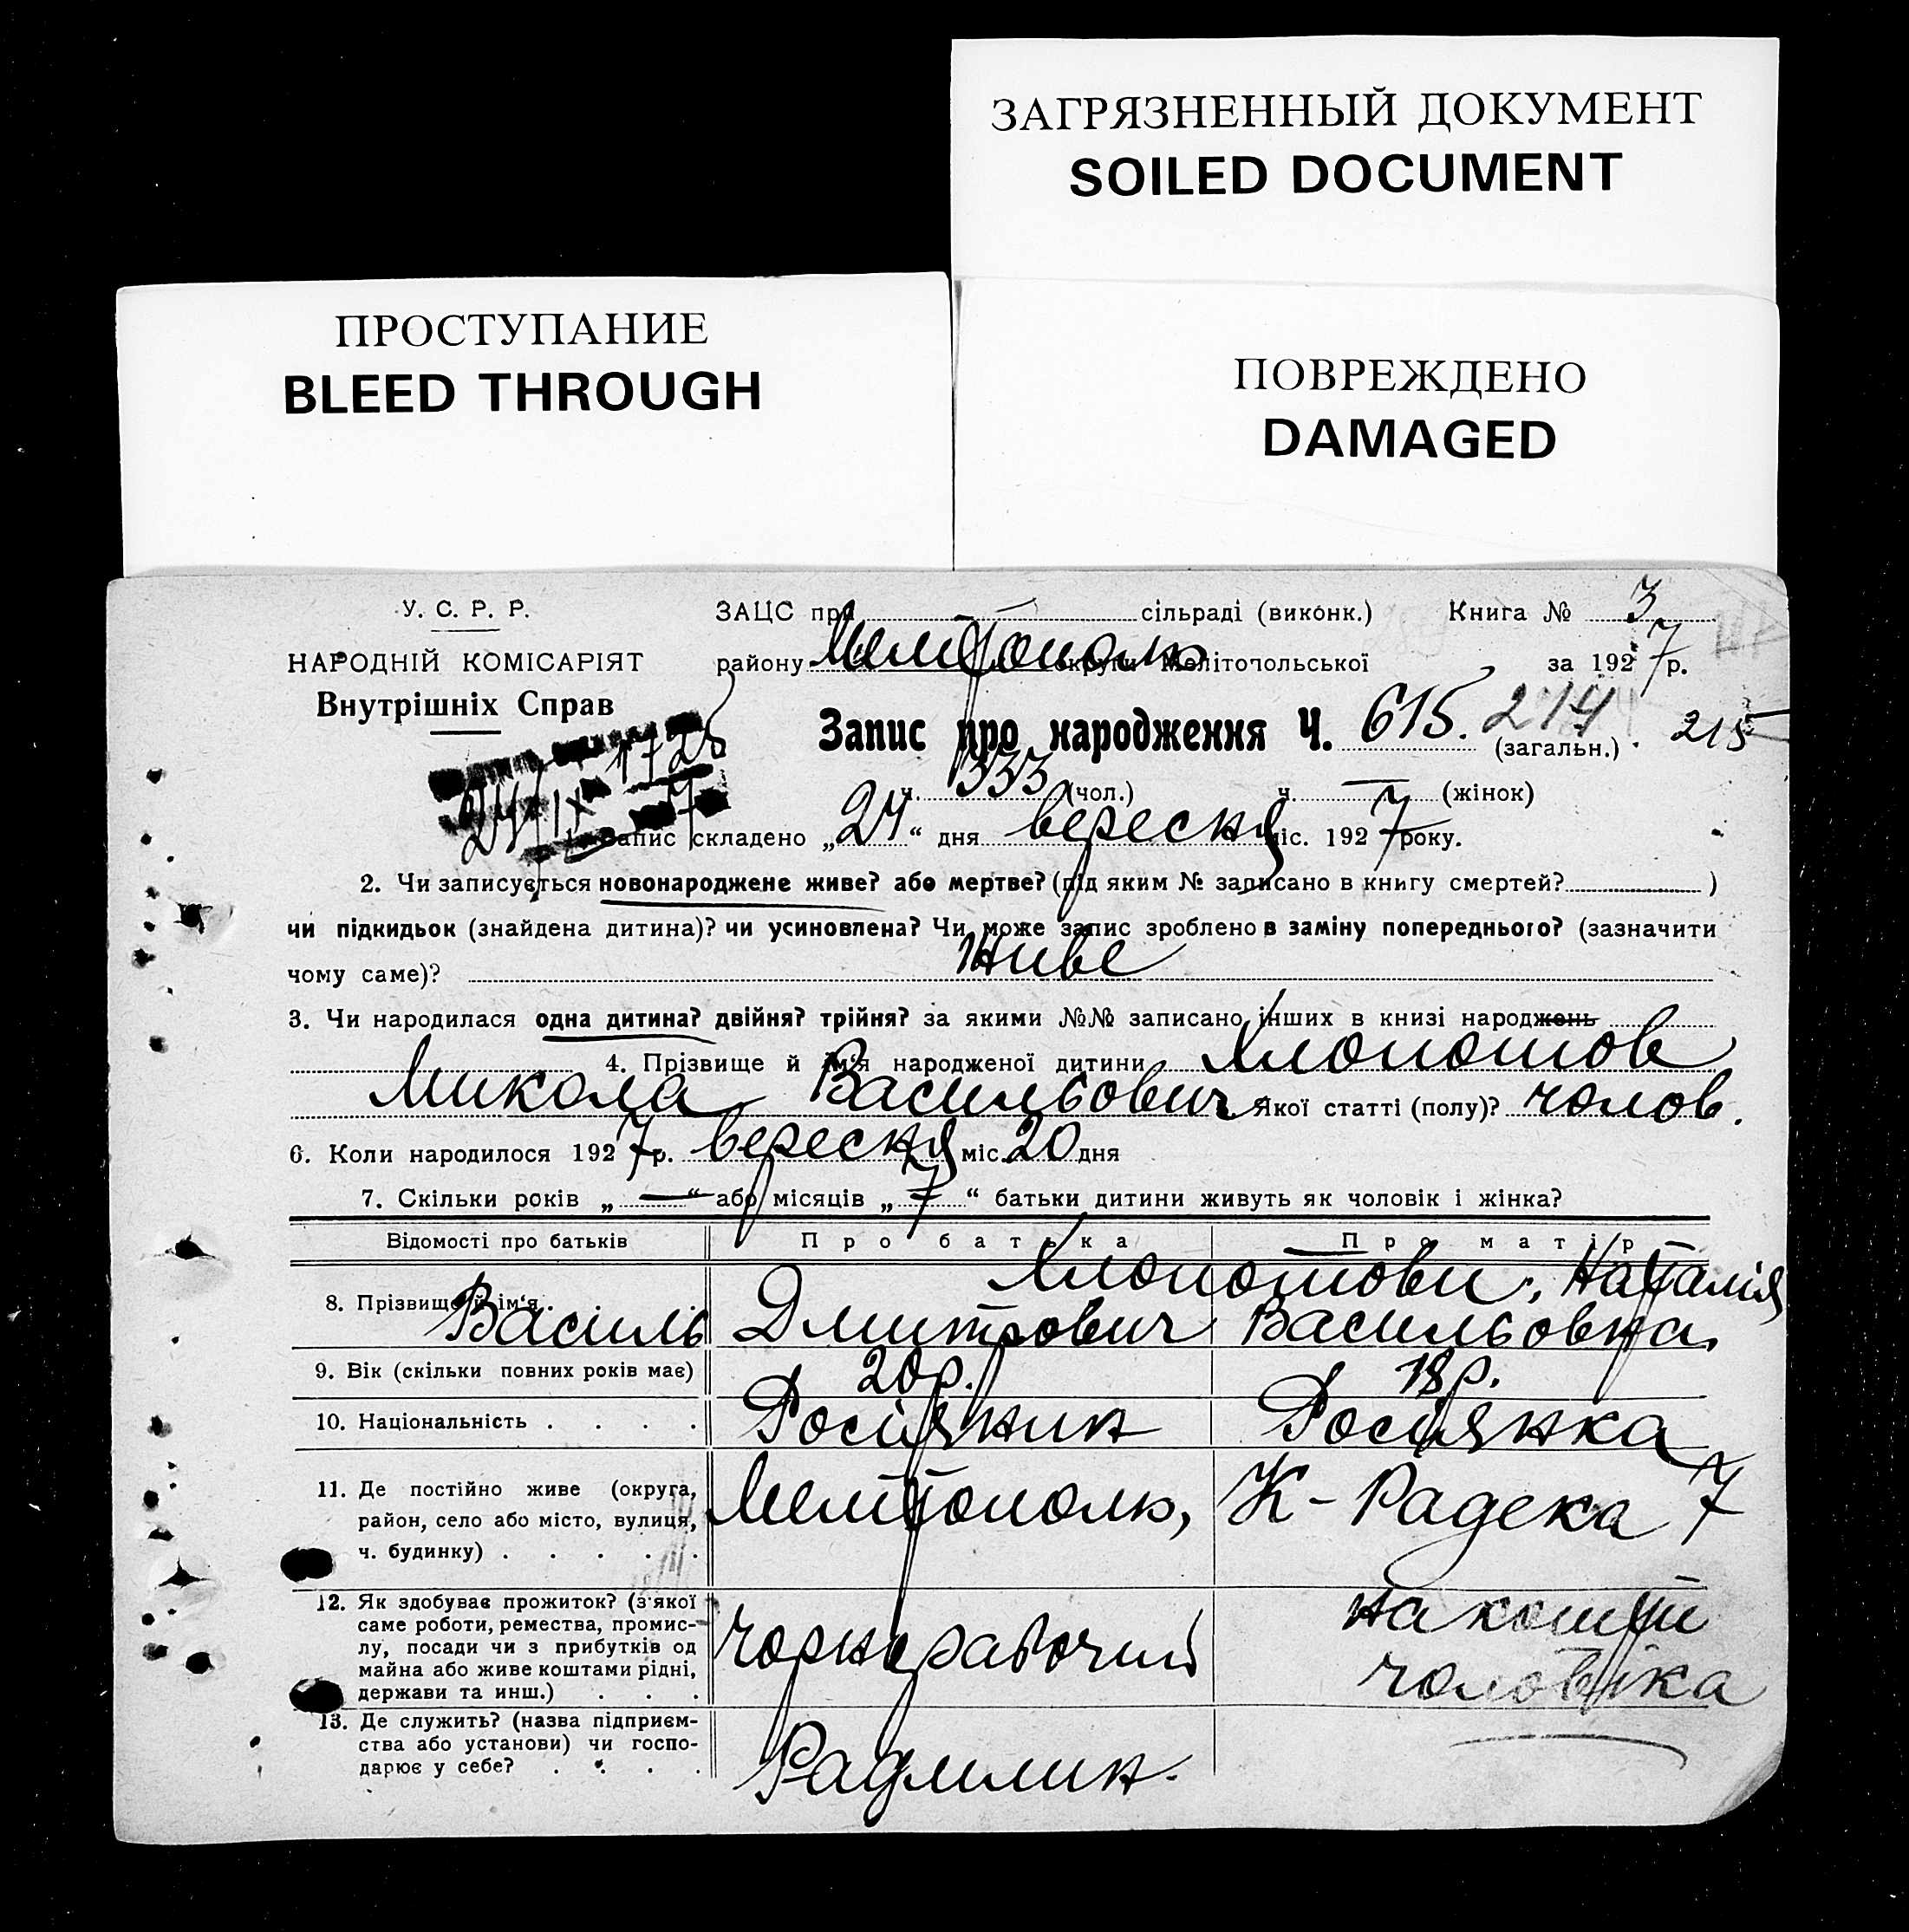 ЗАГРЯЗНЕННЫЙ ДОКУМЕНТ
SOILED DOCUMENT
ПРОСТУПАНИЕ
BLEED THROUGH
ПОВРЕЖДЕНО
DAMAGED
У. С. Р. Р.
НАРОДНІЙ КОМІСАРІЯТ
Внутрішніх Справ
ЗАЦС при — сільраді (виконк.) Книга № 3
району Мелітополь округи Мелітопольської за 1927 р.
Запис про народження Ч. 615. 214 215
(загальн.)
ч. 333 (чол.) ч. — (жінок)
24/IX
Запис складено „24“ дня вересня міс. 1927 року.
2. Чи записується новонароджене живе? або мертве? (під яким № записано в книгу смертей? )
чи підкидьок (знайдена дитина)? чи усиновлена? Чи може запис зроблено в заміну попереднього? (зазначити
чому саме)? живе
3. Чи народилася одна дитина? двійня? трійня? за якими №№ записано інших в книзі народжень
4. Прізвище й ім'я народженої дитини Хлопотов
Микола Васильович Якої статті (полу)? чолов.
6. Коли народилося 1927 р. вересня міс. 20 дня
7. Скільки років „—“ або місяців „7“ батьки дитини живуть як чоловік і жінка?
Відомості про батьків Про батька Про матір
8. Прізвище й ім'я. Хлопотови: Наталія
Василь Дмитрович Васильовна.
9. Вік (скільки повних років має) 20 р. 18 р.
10. Національність . . . . Росіянин Росіянка
11. Де постійно живе (округа,
район, село або місто, вулиця,
ч. будинку) . . . . . Мелітополь, К-Радека 7
12. Як здобуває прожиток? (з якої
саме роботи, ремества, промис-
лу, посади чи з прибутків од
майна або живе коштами рідні,
держави та инш.) . . . чорнорабочий на кошти
чоловіка
13. Де служить? (назва підприєм-
ства або установи) чи госпо-
дарює у себе? . . . .